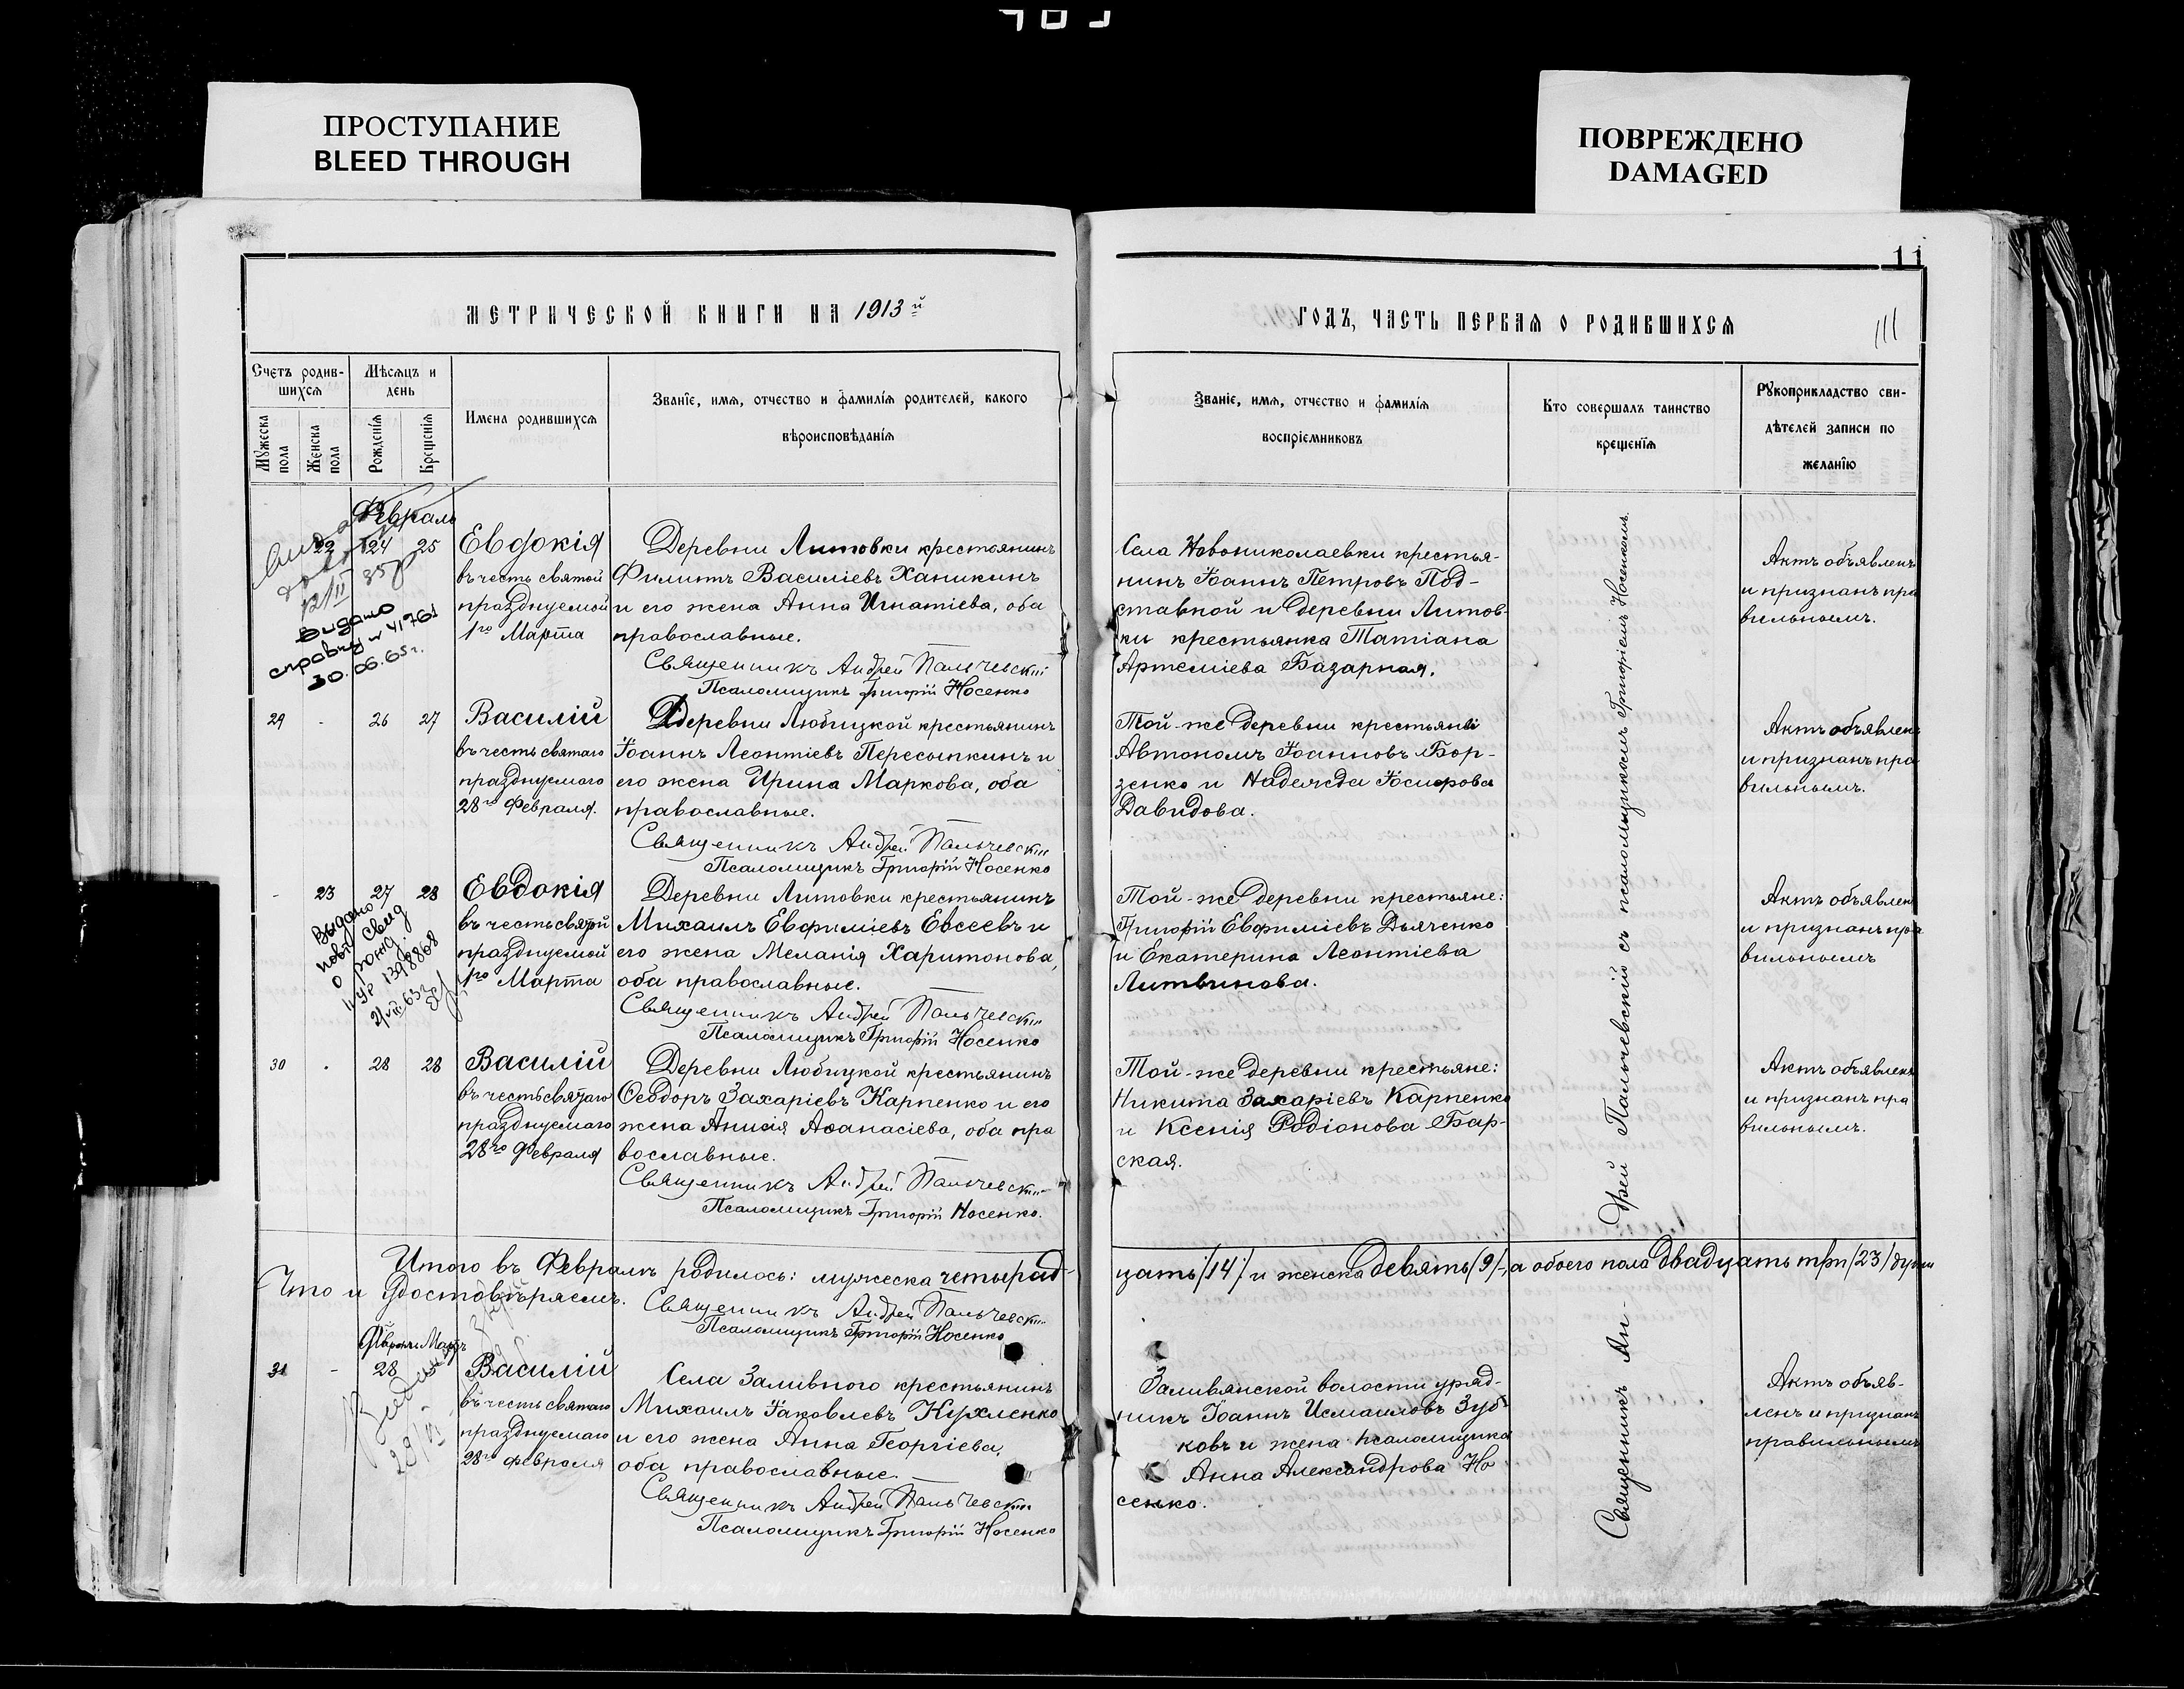 ПРОСТУПАНИЕ
BLEED THROUGH
ПОВРЕЖДЕНО
DAMAGED
11
МЕТРИЧЕСКОЙ КНИГИ НА 1913й
ГОДЪ, ЧАСТЬ ПЕРВАЯ О РОДИВШИХСЯ
111
Счетъ родив-
шихся
Мужеска
пола
Женска
пола
Мѣсяцъ и
день
Рожденія
Крещенія
Имена родившихся
Званіе, имя, отчество и фамилія родителей, какого
вѣроисповѣданія
Званіе, имя, отчество и фамилія
воспріемниковъ
Кто совершалъ таинство
крещенія
Рукоприкладство сви-
дѣтелей записи по
желанію
Февраль
22 24 25
Видано
справку № 41761
30.06.65г.
Евдокія
въ честь святой
празднуемой
1го Марта
Деревни Литовки крестьянинъ
Филиппъ Василіевъ Ханикинъ
и его жена Анна Игнатіева, оба
православные.
Священникъ Андрей Пальчевскій
Псаломщикъ Григорій Носенко
Села Новониколаевки крестья-
нинъ Іоаннъ Петровъ Под-
ставкой и деревни Литов-
ки крестьянка Татіана
Артеміева Базарная.
Актъ объявленъ
и признанъ пра
вильнымъ.
29 - 26 27
Василій
въ честь святаго
празднуемаго
28го Февраля.
Деревни Любицкой крестьянинъ
Іоаннъ Леонтіевъ Пересыпкинъ и
его жена Ирина Маркова, оба
православные.
Священникъ Андрей Пальчевскій
Псаломщикъ Григорій Носенко
Той-же деревни крестьяне
Автономъ Іоанновъ Бор-
зенко и Надежда Іосифова
Давидова.
Актъ объявленъ
и признанъ пра
вильнымъ.
- 23 27 28
Выдано
повт свид
о рожд.
1398868
Евдокія
въ честь святой
празднуемой
1го Марта
Деревни Литовки крестьянинъ
Михаилъ Евфиміевъ Евсеевъ и
его жена Меланія Харитонова,
оба православные.
Священникъ Андрей Пальчевскій
Псаломщикъ Григорій Носенко
Той-же деревни крестьяне:
Григорій Евфиміевъ Дьяченко
и Екатерина Леонтіева
Литвинова.
Актъ объявленъ
и признанъ пра
вильнымъ
30 . 28 28
Василій
въ честь святаго
празднуемаго
28го Февраля
Деревни Любицкой крестьянинъ
Ѳеодоръ Захаріевъ Карпенко и его
жена Анисія Аѳанасіева, оба пра
вославные.
Священникъ Андрей Пальчевскій
Псаломщикъ Григорій Носенко.
Той-же деревни крестьяне:
Никита Захаріевъ Карпенко
и Ксенія Родіонова Бар-
ская.
Актъ объявленъ
и признанъ пра
вильнымъ.
Итого въ Февралѣ родилось: мужеска четырнад-
цать /14/ и женска девять /9/, а обоего пола двадцать три /23/ души
Что и удостовѣряемъ.
Священникъ Андрей Пальчевскій
Псаломщикъ Григорій Носенко
31 - 28
Василій
въ честь святаго
празднуемаго
28го февраля
Села Заливного крестьянинъ
Михаилъ Іаковлевъ Кухленко
и его жена Анна Георгіева,
оба православные.
Священникъ Андрей Пальчевскій
Псаломщикъ Григорій Носенко
Заливянской волости уряд-
никъ Іоаннъ Исмаиловъ Зуб-
ковъ и жена псаломщика
Анна Александрова Но
сенко.
Актъ объяв-
ленъ и признанъ
правильнымъ
Священникъ Ан-
дрей Пальчевскій съ псаломщикомъ Григоріемъ Носенкомъ.